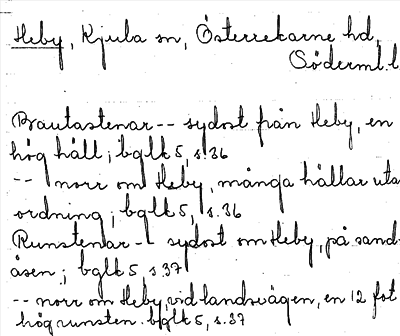 Heby, Kjula sn, Österrekarne hd,
Söderml. l
Bautastenar -- sydost från Heby, en
hög häll; bglk 5, s. 36
-- norr om Heby, många hällar uta
ordning; bglk 5, s. 36
Runstenar -- sydost om Heby, på sand-
åsen; bglk 5 s. 37
-- norr om Heby, vid landsvägen, en 12 fot
hög runsten. bglk 5, s. 37